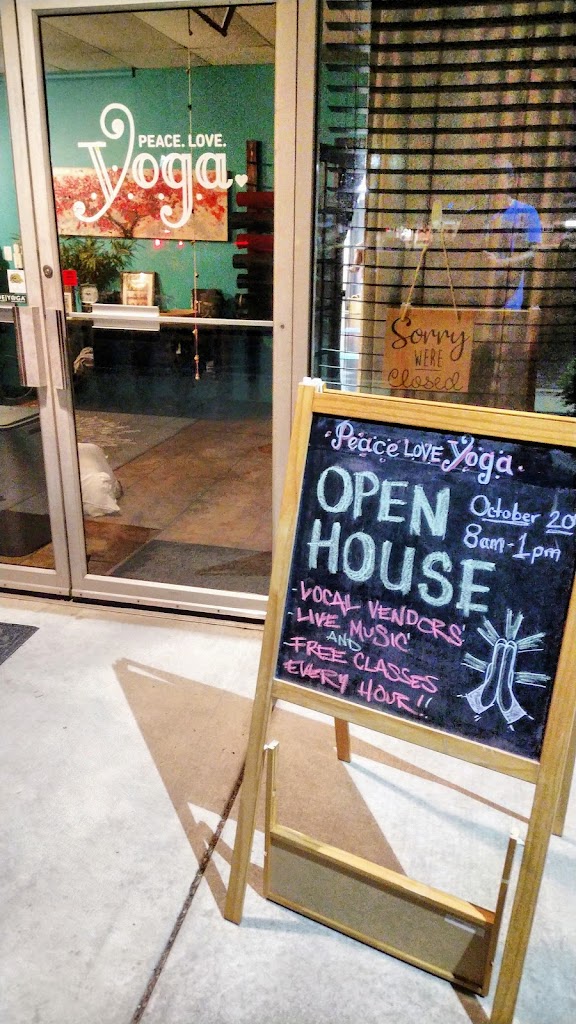 PEACE. LOVE.
yoga.
Sorry
WERE
Closed
Peace LOVE Yoga
OPEN
HOUSE
October 20
8am-1pm
-VOCAL VENDORS
-LIVE MUSIC
AND
-FREE CLASSES
EVERY HOUR!!